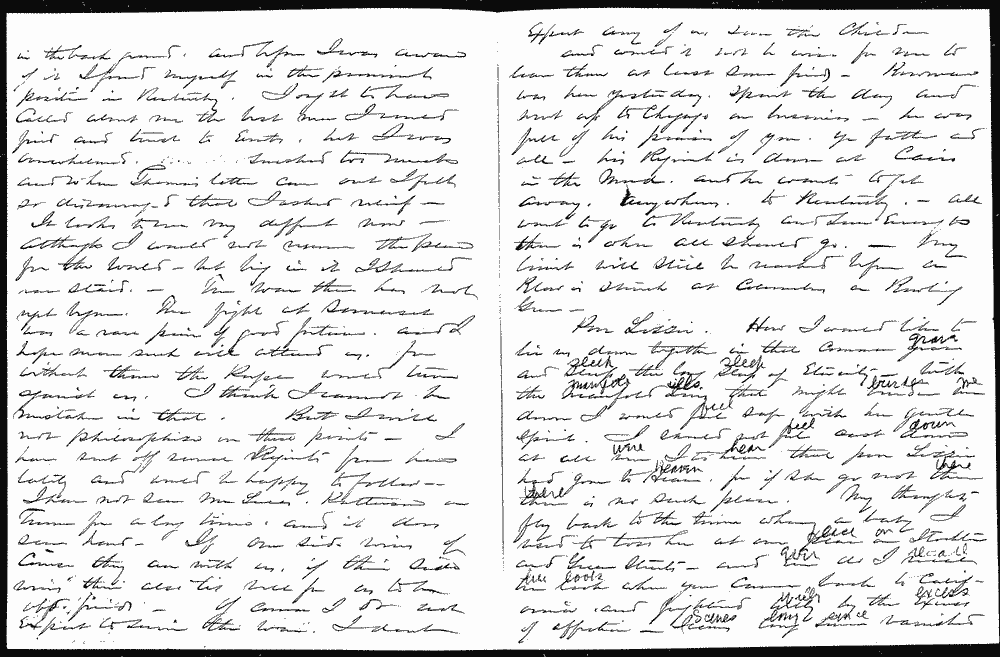 in the back ground. and before I was aware
of it I found myself in the prominent
position in Kentucky. I ought to have
called about me the best men I could
find and trust to Events. but I was
overwhelmed. too much
and when Thomas letter came out I felt
so discouraged that I asked relief —
It looks to me very different now —
although I would not resume the place
for the world — but being in it I should
have staid. — The war there has not
yet begun. The fight at Somerset
was a rare piece of good fortune. and I
hope more such will attend us. for
without them the People would turn
against us. I think I cannot be
mistaken in that. But I will
not philosophise on these points — I
have sent off several Regiments from here
lately and would be happy to follow —
I have not seen Mrs Lucas. Patterson or
Turner for a long time. and it does
seem hard — If our side wins of
Course they are with us. if the other side
wins then also tis well for us to have
off. friends — Of course I do not
Expect to survive the war. I dont
Expect any of us save the Children
and would it not be wise for me to
leave them at least some friends — Bowman
was here yesterday. Spent the day and
went up to Chicago on business — he was
full of his praises of you. yr father and
all — his Regiment is down at Cairo
in the Mud. and he wants to get
away. anywhere. to Kentucky. — all
want to go to Kentucky and sure Enough
there is where all should go. — My
limit will still be reached before a
Blow is struck at Columbus or Bowling
Green —
Poor Lizzie. How I would like to
grave
lie us down together in that common grave
sleep sleep
and sleep the long sleep of Eternity. With
manifold ills burden me
the manifold ills that might burden me
feel
down I would feel safe with her gentle
feel down
spirit. I should not feel cast down
were hear
at all were I to hear that poor Lizzie
heaven there
had gone to Heaven. for if she go not there
there
there is no such place. My thoughts
fly back to the time when a baby I
place on
used to toss her at our place on Stockton
even recall
and Green Streets — and even do I recall
her look
her look when you came back to Calif-
with excess
ornia. and frightened with by the excess
Scenes long since
of affection — Scenes long since vanished